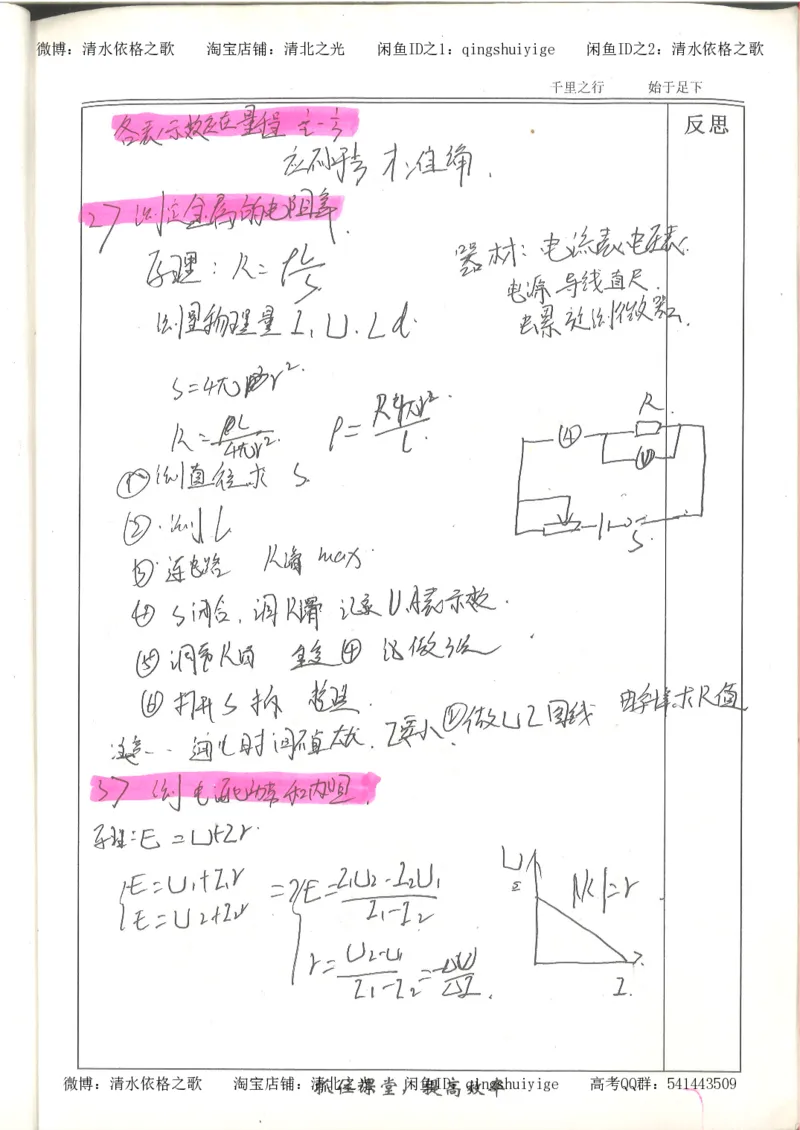 微博：清水依格之歌 淘宝店铺：清北之光 闲鱼ID之1：qingshuiyige 闲鱼ID之2：清水依格之歌
千里之行 始于足下
反思
各表示数应在量程 1/2-2/3
才准确.
2) 测定金属的电阻率.
原理：R=ρL/S
器材：电流表、电压表.
电源 导线 直尺.
测量物理量 I、U、L d.
S=4πr².
R=ρL/4πr². ρ=R4πr²/L.
R.
A
V
S.
① 测直径求 S
②.测 L
③ 连电路 R滑 max.
④ S闭合，调R滑 记录U、A表示数.
⑤ 调节R滑 重复④
⑥ 打开S 拆 整理.
注意.. 通电时间不宜太长. I要小. 做U I图线 由斜率求R值
3) 测电源电动势和内阻.
原理：E=U+Ir.
E=U₁+I₁r
E=U₂+I₂r
=> E=I₁U₂-I₂U₁/I₁-I₂
r=U₂-U₁/I₁-I₂=ΔU/ΔI.
U
E
|k|=r
I.
微博：清水依格之歌 淘宝店铺：清北之光 闲鱼ID：qingshuiyige 高考QQ群：541443509
抓住课堂，提高效率